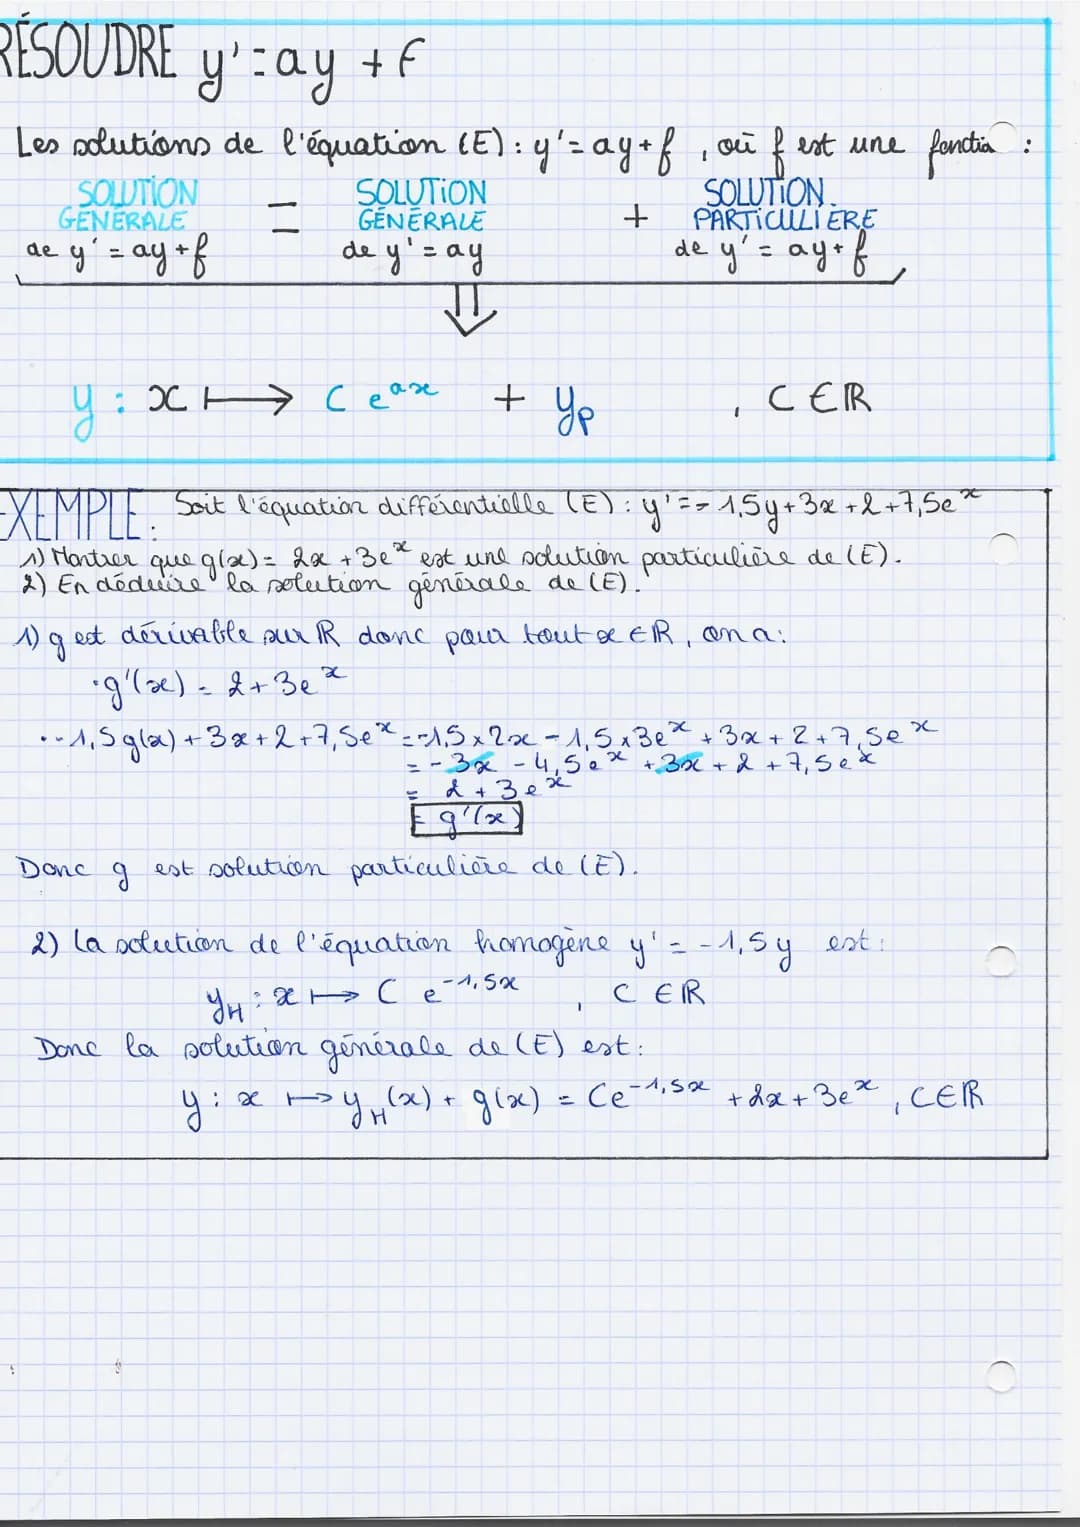 RÉSOUDRE y' = ay + f
Les solutions de l'équation (E) : y' = ay + f , où f est une fonction :
SOLUTION GÉNÉRALE de y' = ay + f = SOLUTION GÉNÉRALE de y' = ay + SOLUTION PARTICULIÈRE de y' = ay + f
⇓
y : x ⟼ C e^{ax} + y_p , C ∈ ℝ
EXEMPLE : Soit l'équation différentielle (E) : y' = -1,5y + 3x + 2 + 7,5e^x
1) Montrer que g(x) = 2x + 3e^x est une solution particulière de (E).
2) En déduire la solution générale de (E).
1) g est dérivable sur ℝ donc pour tout x ∈ ℝ, on a :
• g'(x) = 2 + 3e^x
• -1,5g(x) + 3x + 2 + 7,5e^x = -1,5 × 2x - 1,5 × 3e^x + 3x + 2 + 7,5e^x
= -3x - 4,5e^x + 3x + 2 + 7,5e^x
= 2 + 3e^x
= g'(x)
Donc g est solution particulière de (E).
2) La solution de l'équation homogène y' = -1,5y est :
y_H : x ⟼ C e^{-1,5x} , C ∈ ℝ
Donc la solution générale de (E) est :
y : x ⟼ y_H(x) + g(x) = Ce^{-1,5x} + 2x + 3e^x , C ∈ ℝ